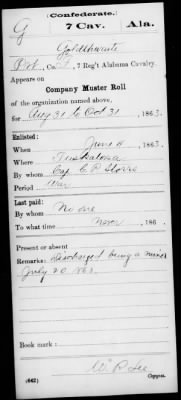 (Confederate.)
G 7 Cav. Ala.
Goldthwaite
Pvt, Co. , 7 Reg't Alabama Cavalry.
Appears on
Company Muster Roll
of the organization named above,
for Aug 31 to Oct 31, 1863.
Enlisted:
When June , 1863.
Where Tuskaloosa
By whom Cap C P Storrs
Period War
Last paid:
By whom No one
To what time never, 186 .
Present or absent
Remarks: Discharged being a minor
July 20 1863.
Book mark:
(642) W. P. Lee
Copyist.